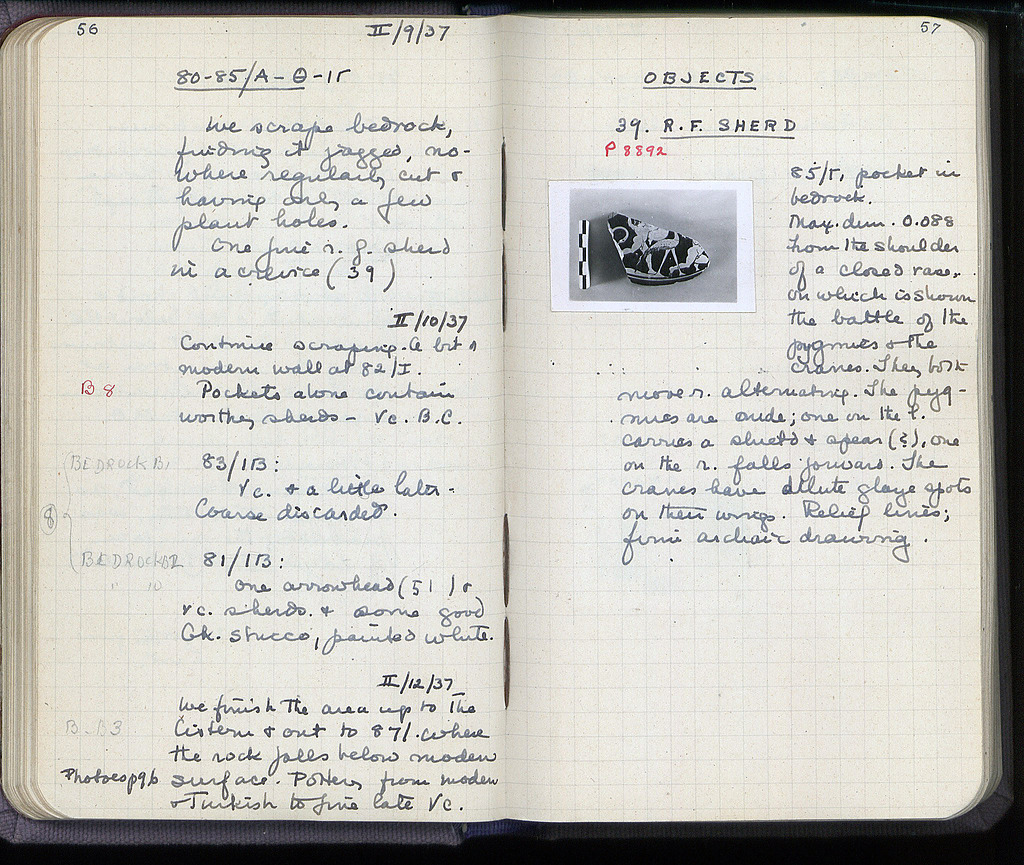 56
II/9/37
80-85/A-Θ-ΙΓ
We scrape bedrock,
finding it jagged, no-
where regularly cut &
having only a few
plant holes.
One fine r.f. sherd
in a crevice (39)
II/10/37
Continue scraping. A bit of
modern wall at 82/I.
B 8
Pockets alone contain
worthy sherds - Vc. B.C.
BEDROCK B1
83/IB:
Vc. & a little later.
Coarse discarded.
8
BEDROCK B2
" 10
81/IB:
One arrowhead (51) &
Vc. sherds. & some good
Gk. stucco, painted white.
II/12/37
We finish the area up to the
B-B3
Cistern & out to 87/. where
the rock falls below modern
Photo p96
surface. Pottery from modern
& Turkish to fine late Vc.
57
OBJECTS
39. R.F. SHERD
P 8892
85/Γ, pocket in
bedrock.
Max. dim. 0.088
From the shoulder
of a closed vase,
on which is shown
the battle of the
pygmies & the
cranes. They both
move r. alternating. The pyg-
mies are nude; one on the l.
carries a shield & spear (?), one
on the r. falls forward. The
cranes have dilute glaze spots
on their wings. Relief lines;
fine archaic drawing.